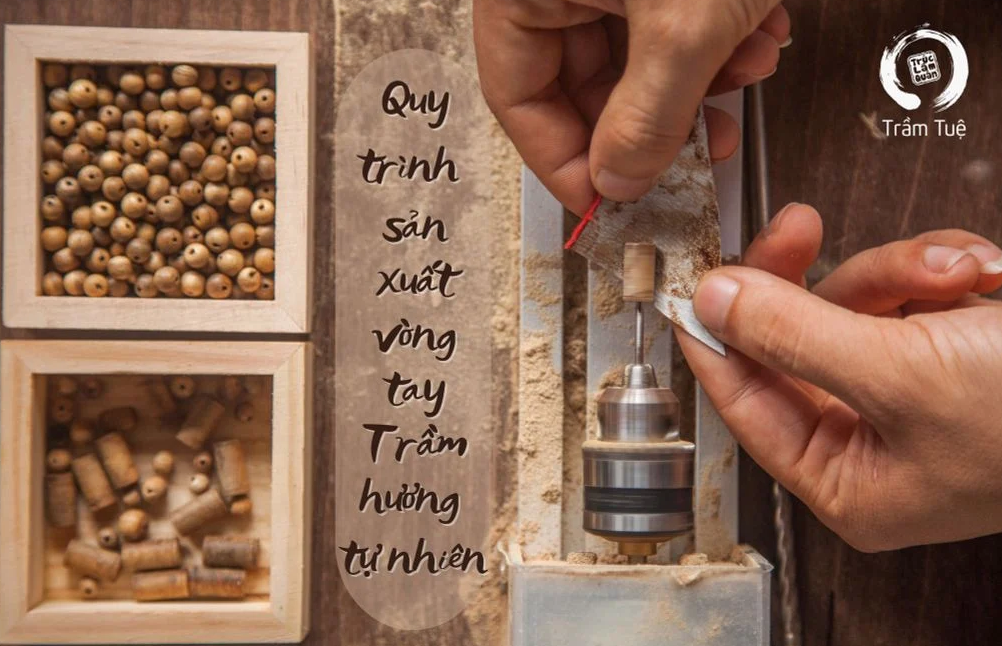 Quy
trình
sản
xuất
vòng
tay
Trầm
hương
tự nhiên
Trúc
Lâm
Quán
Trầm Tuệ